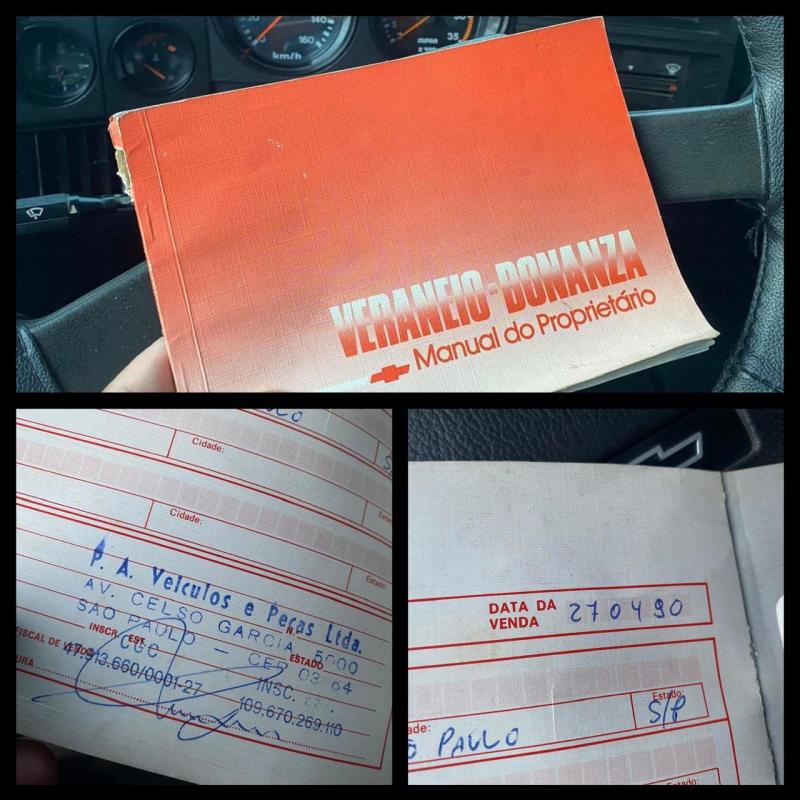 140
160
km/h
RPM
35
VERANEIO-BONANZA
Manual do Proprietário
Cidade:
Cidade:
Estado
P. A. Veículos e Peças Ltda.
AV. CELSO GARCIA, 5000
SÃO PAULO — CEP
INSCR. EST.
ESTADO
FISCAL DE
CGC
47.913.660/0001-27
INSC.
109.670.269.110
DATA DA VENDA 270490
Estado:
PAULO
S/P
Estado: